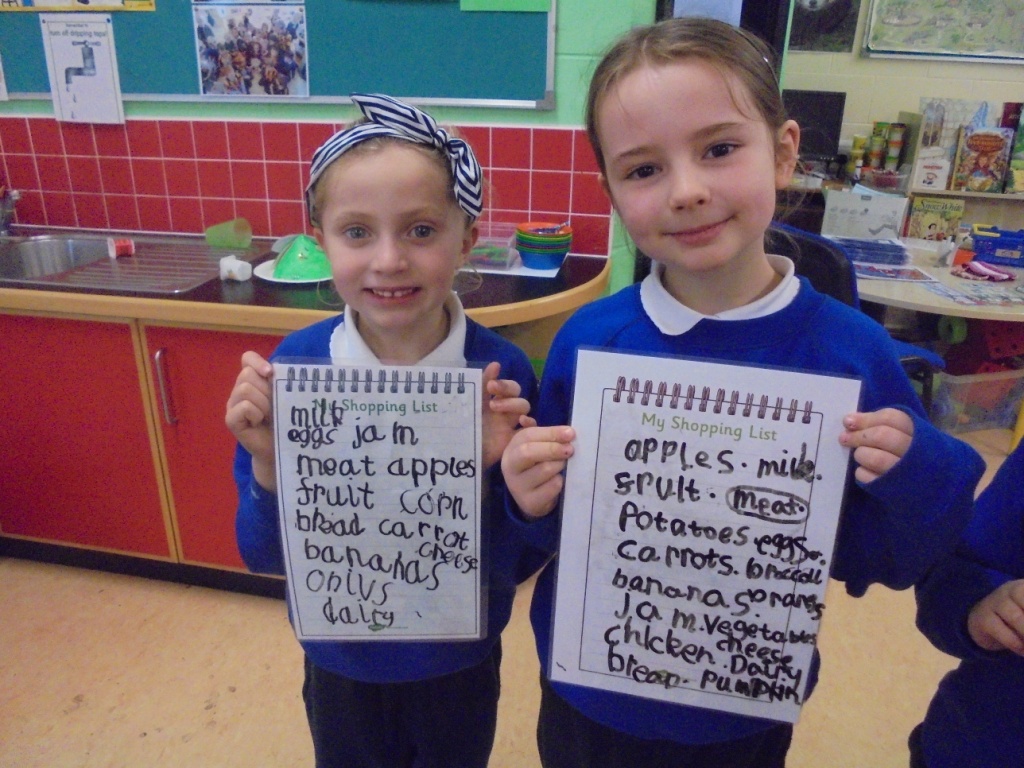 turn off dripping taps!
My Shopping List
milk
eggs jam
meat apples
fruit corn
bread carrot
cheese
bananas
onivs
dairy
My Shopping List
apples. milk.
fruit. meat.
potatoes eggs.
carrots. broccoli
bananas. oranges
jam. vegetables
cheese
chicken. Dairy
breap. pumpkin